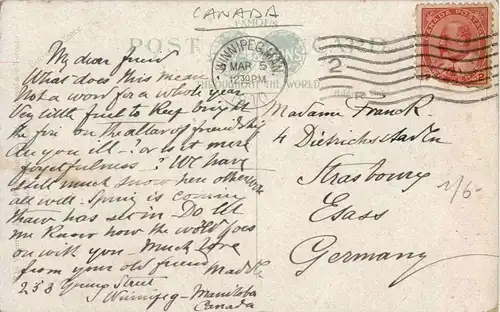 CANADA
POST CARD
WINNIPEG, MAN.
MAR 5
1230PM
THROUGHOUT THE WORLD
CANADA POSTAGE
2
2
My dear friend
What does this mean
Not a word for a whole year
Very little fuel to keep bright
the fire on the altar of friendship
Are you ill-? or is it mere
forgetfulness? We have
still much snow here otherwise
all well. Spring is coming
thaw has set in- Do let
me know how the world goes
on with you. Much love
from your old friend
233 Street
Winnipeg- Manitoba
Canada
Madame Franck.
4
Strasbourg
Elsass
Germany